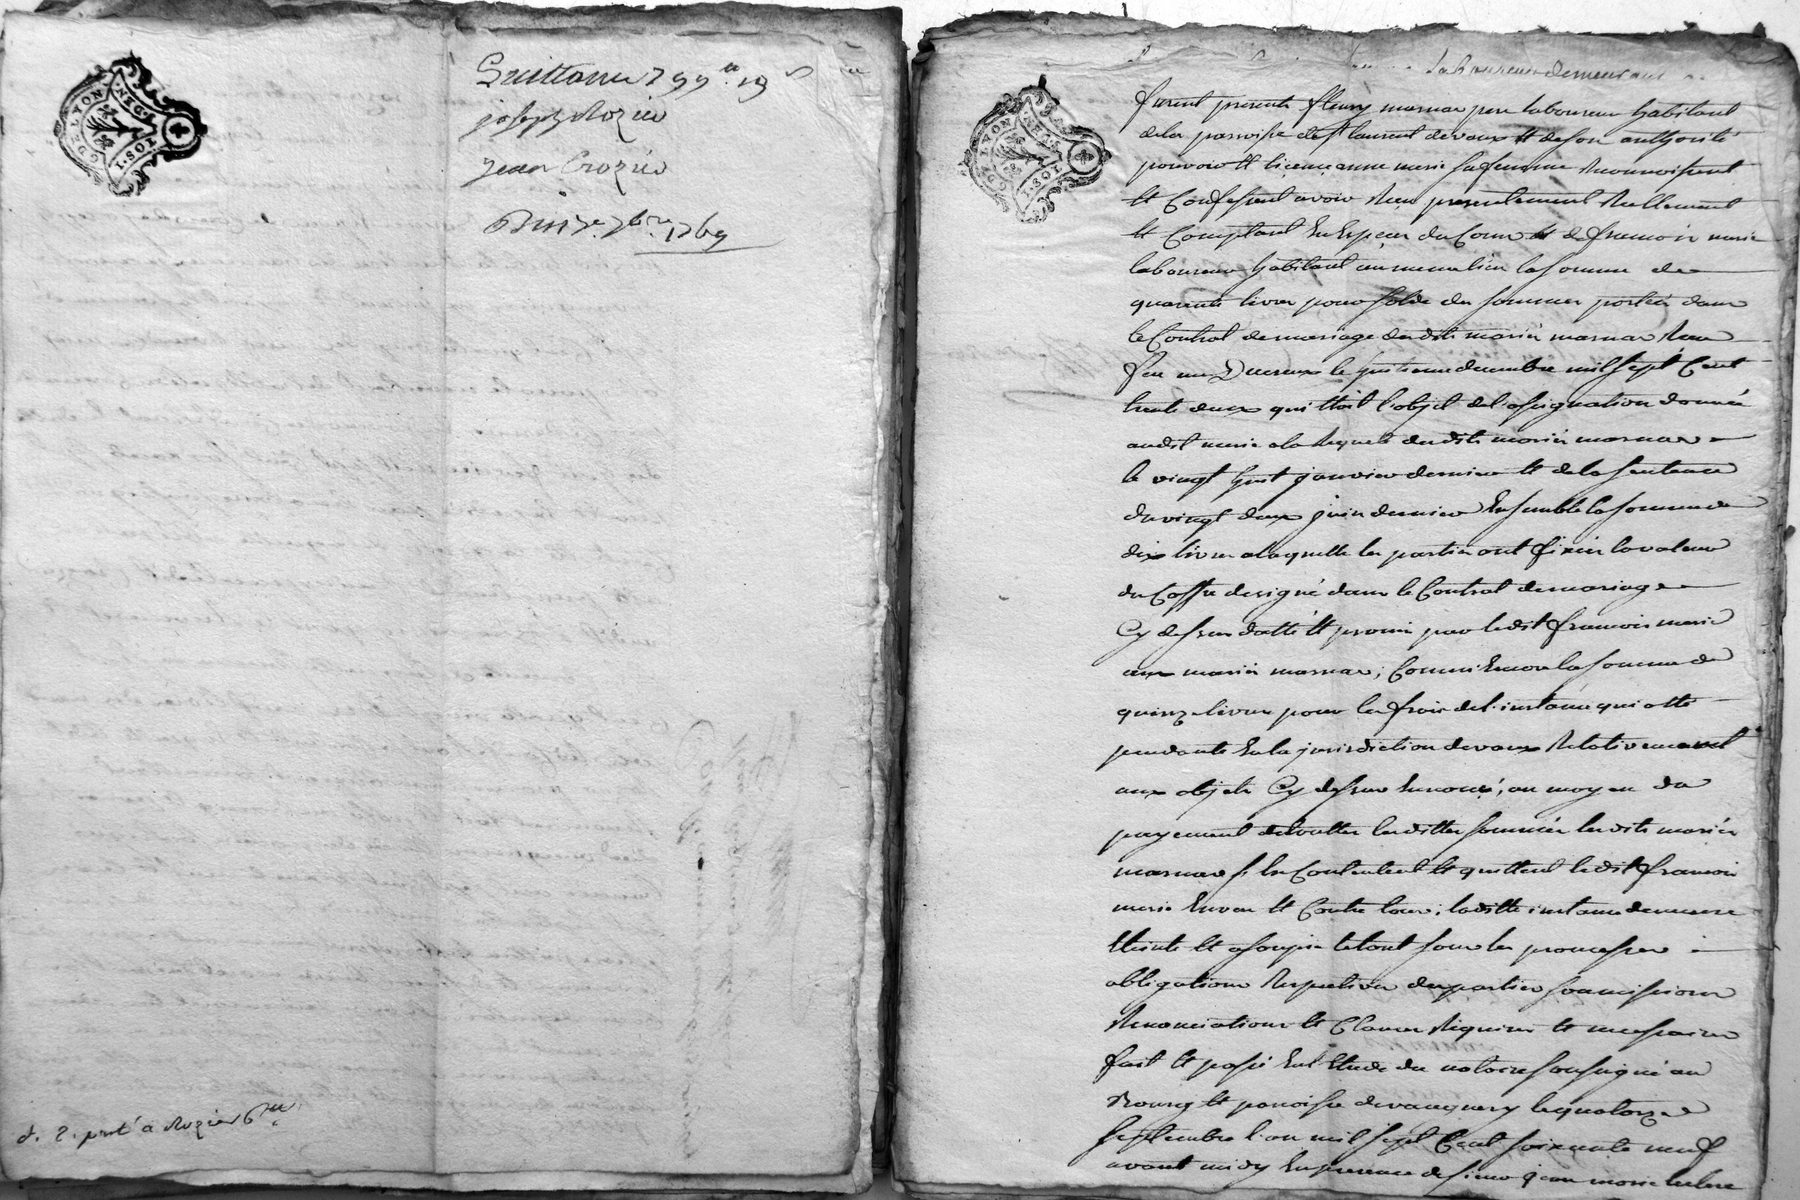 LYON
GEN.
1. SOL
Quittance 799ᵗᵗ 19ˢ
joseph Rozier
jean Crozier
Du 7ᵉ 7bre 1769
d. 2. pert a Rozier 6ᵗᵗ
LYON
GEN.
1. SOL
laboureur demeurant
furent presents fleury marnas pere laboureur habitant
de la parroisse de st laurent de vaux et de son authorité
pouvoir et licence anne meric sa femme Reconnoissent
et Confessent avoir Reçu presentement Reellement
et Comptant En Espece du Cour et de francois meric
laboureur habitant au meme lieu la somme de
quarente livres pour solde des sommes portées dans
le Contrat de mariage desdits mariés marnas Reçu
feu me Ducreux le huitieme decembre mil sept Cent
trente deux qui etoit l'objet de l'assignation donnée
audit meric a la Requete desdits mariés marnas
le vingt huit janvier dernier et de la sentence
du vingt deux juin dernier Ensemble la somme de
dix livres a laquelle les parties ont fixée la valeur
du Coffre designé dans le Contrat de mariage
Cy dessus datté et promis par ledit francois meric
aux mariés marnas ; Comme Encore la somme de
quinze livres pour les frais de l'instance qui a eté
pendante En la jurisdiction de vaux Relativement
aux objets Cy dessus Enoncé ; au moyen du
payement de toutes lesdittes sommes lesdits mariés
marnas se En Contentent et quittent ledit francois
meric Envers et Contre tous ; laditte instance demeure
Eteinte et assoupie le tout sous les promesses
obligations Respectives des parties soumissions
Renonciations et Clauses Requises et necessaires
fait et passé En l'Etude du notaire soussigné au
Bourg et paroisse de vaugneray le quatorze
septembre l'an mil sept Cent soixante neuf
avant midy En presence de sieur jean marie